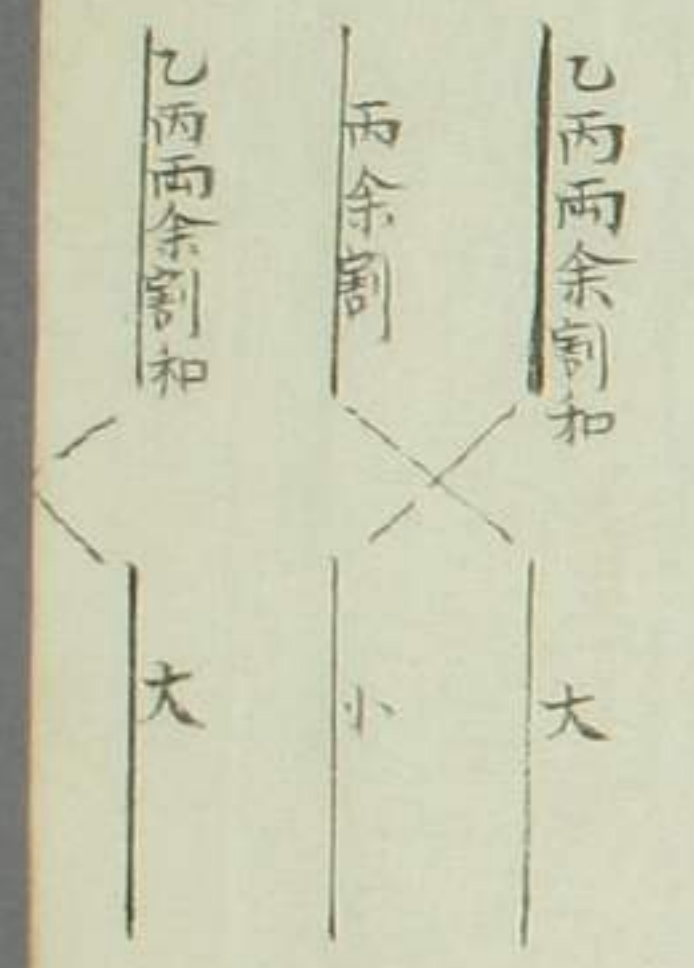 乙丙両余割和
大
丙余割
小
乙丙両余割和
大